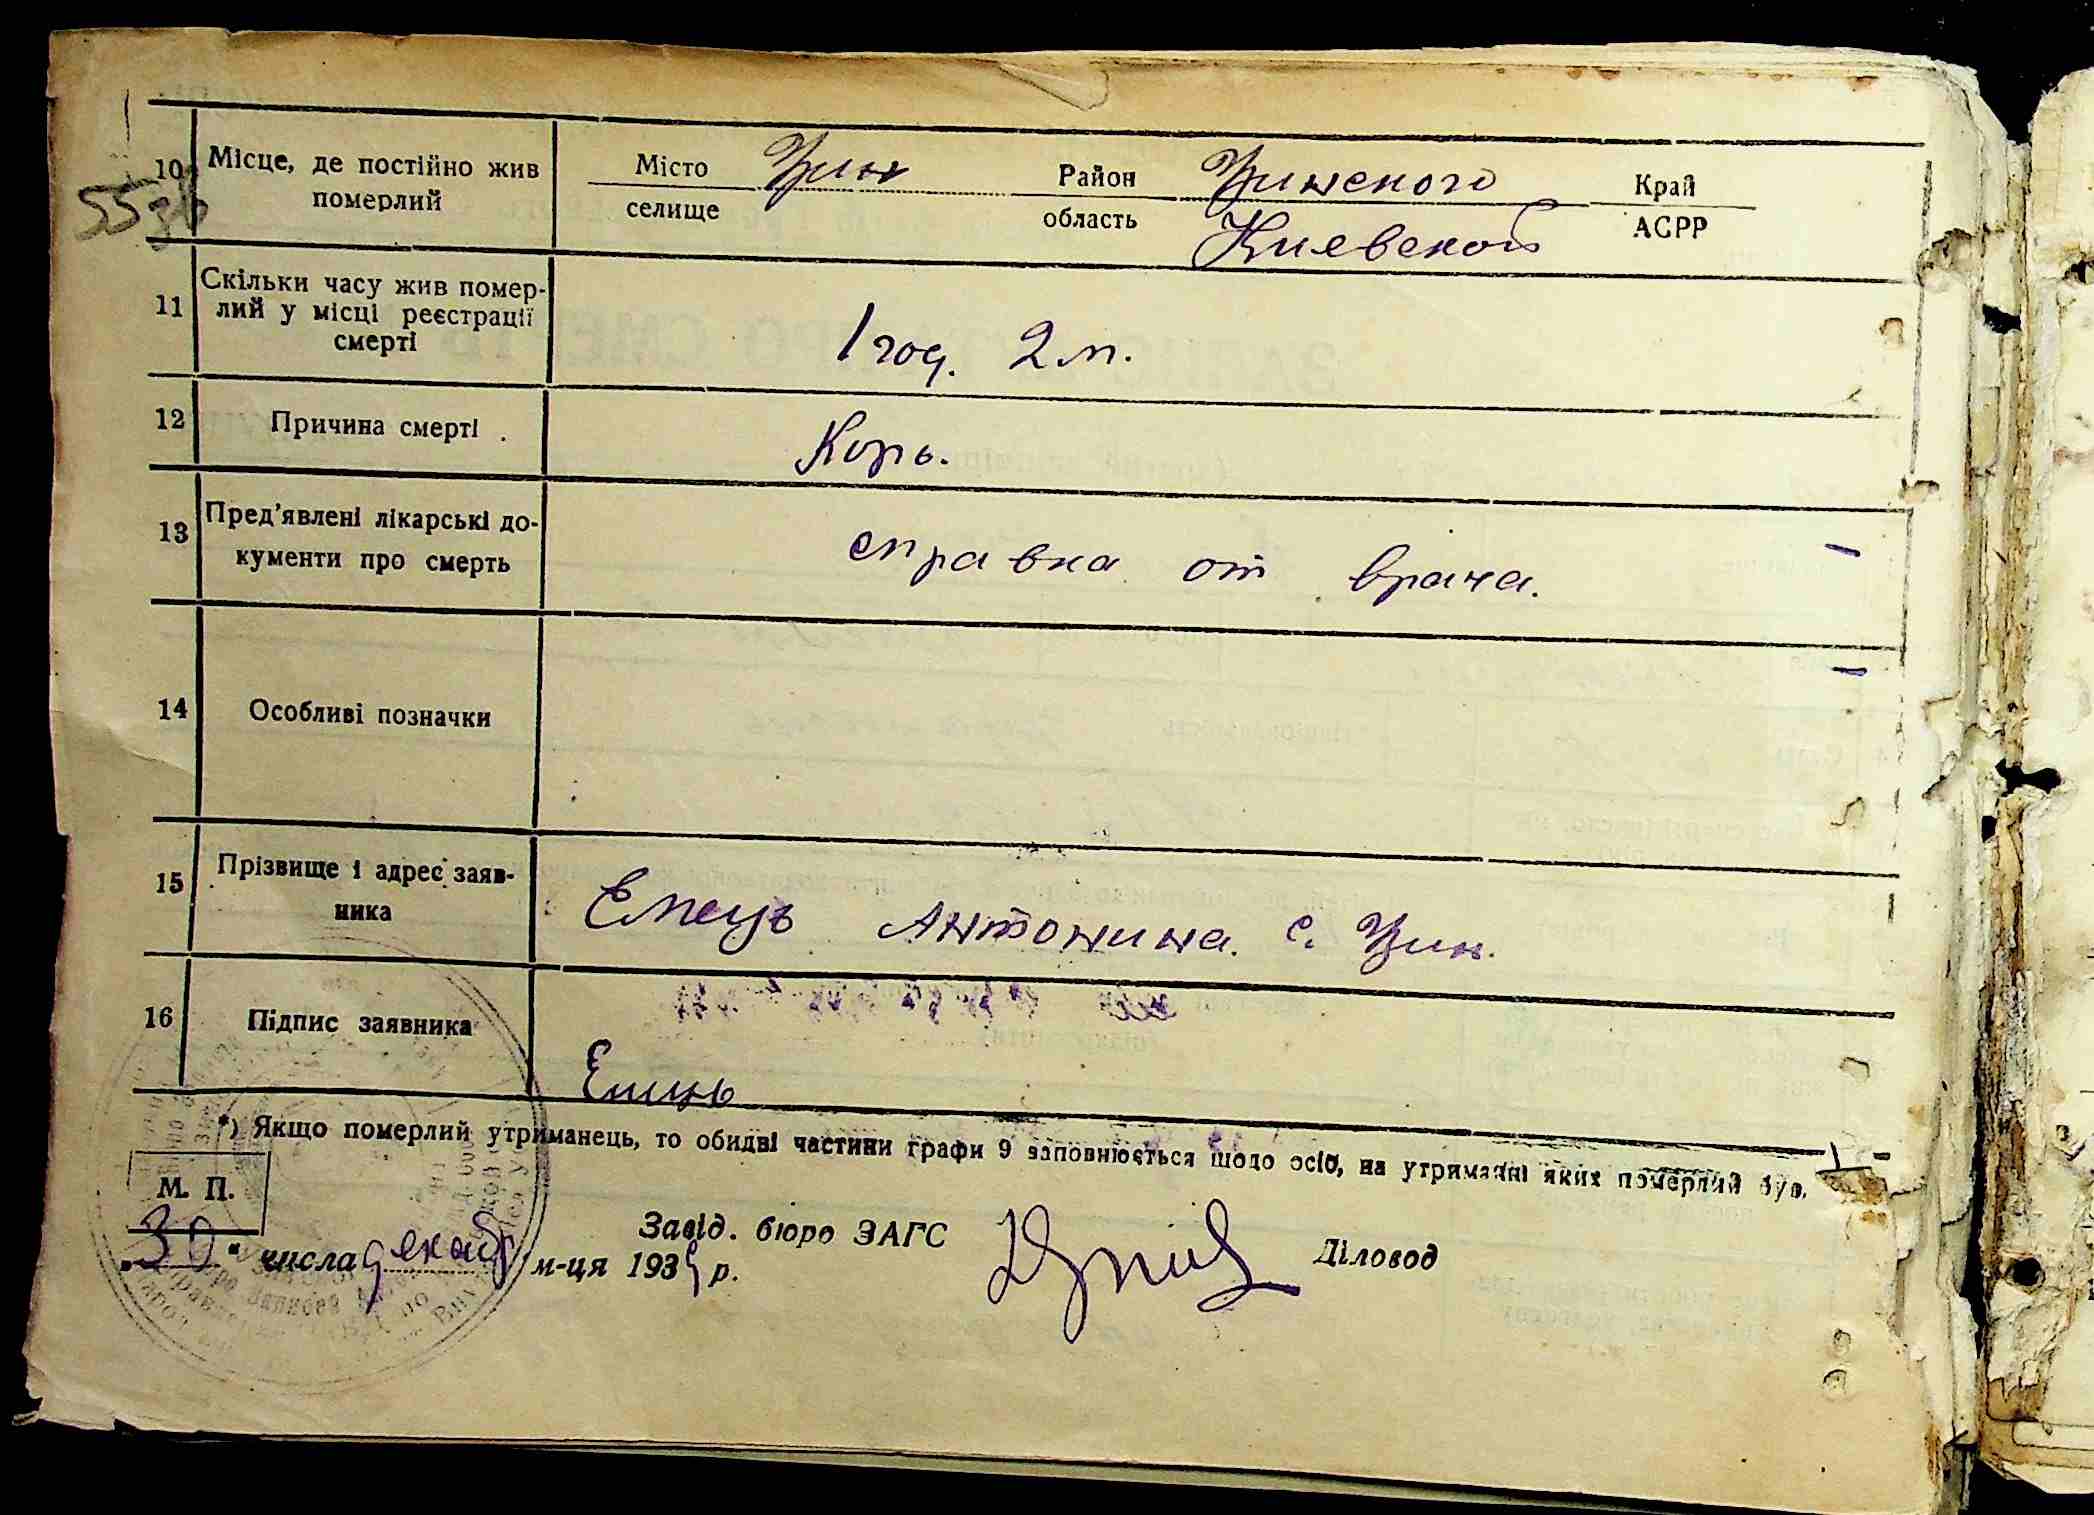 55 зв
10 Місце, де постійно жив померлий
Місто Узин Район Узинского Край
селище область Киевской АСРР
11 Скільки часу жив помер-
лий у місці реєстрації
смерті
1 год. 2 м.
12 Причина смерті
Корь.
13 Пред'явлені лікарські до-
кументи про смерть
справка от врача.
14 Особливі позначки
15 Прізвище і адрес заяв-
ника
Емець Антонина. с. Узин.
16 Підпис заявника
Емець
*) Якщо померлий утриманець, то обидві частини графи 9 заповнюється щодо осіб, на утриманні яких померлий був.
М. П.
„30" числа декаб м-ця 1939 р.
Завід. бюро ЗАГС
Діловод